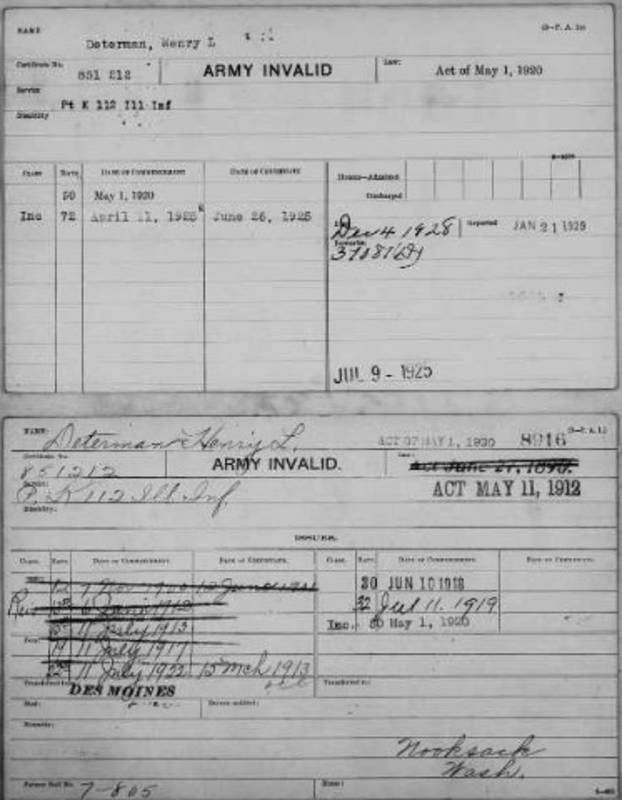 NAME
(3-P. A. 1)
Determan, Henry L
Certificate No.
851 212
ARMY INVALID
Law:
Act of May 1, 1920
Service
Pt K 112 Ill Inf
Disability
CLASS RATE DATE OF COMMENCEMENT DATE OF CERTIFICATE
Home—Admitted
Discharged
50 May 1, 1920
Inc 72 April 11, 1925 June 26, 1925
Dec 4 1928 Reported JAN 21 1929
Remarks:
JUL 9 - 1925
NAME:
Determan Henry L.
ACT OF MAY 1, 1920 8916
(3-P. A. 1.)
Certificate No.
851212
ARMY INVALID.
Law:
Act June 27, 1890.
Service:
P. K 112 Ill. Inf.
ACT MAY 11, 1912
Disability:
ISSUES.
CLASS. RATE. DATE OF COMMENCEMENT. DATE OF CERTIFICATE. CLASS. RATE. DATE OF COMMENCEMENT. DATE OF CERTIFICATE.
30 JUN 10 1918
32 Jul 11. 1919
11 July 1913
Inc. May 1, 1920
19 11 July 1917
11 July 1922 15 Mch 1913
Transferred from
DES MOINES
Transferred to:
Died:
Bureau notified:
Remarks:
Nooksack
Wash.
Former Roll No.
7-805
Home: